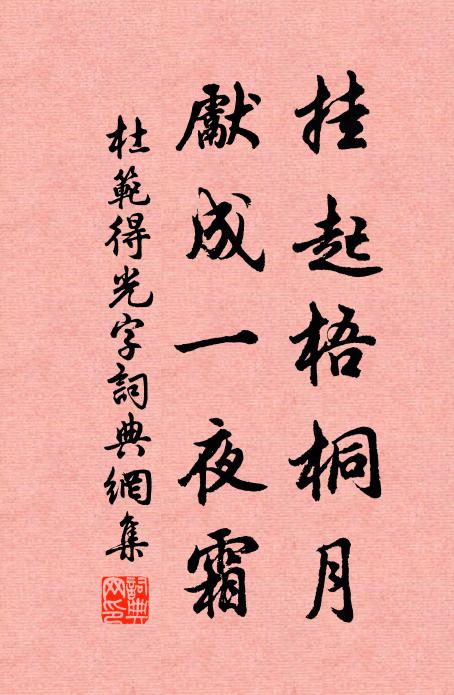 挂起梧桐月
獻成一夜霜
杜範得光字詞典網集
詞典網印